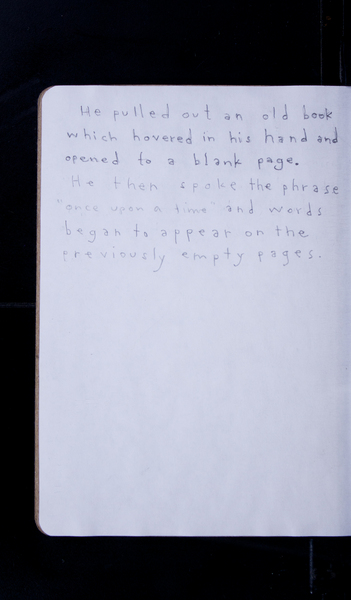 He pulled out an old book
which hovered in his hand and
opened to a blank page.
He then spoke the phrase
"once upon a time" and words
began to appear on the
previously empty pages.